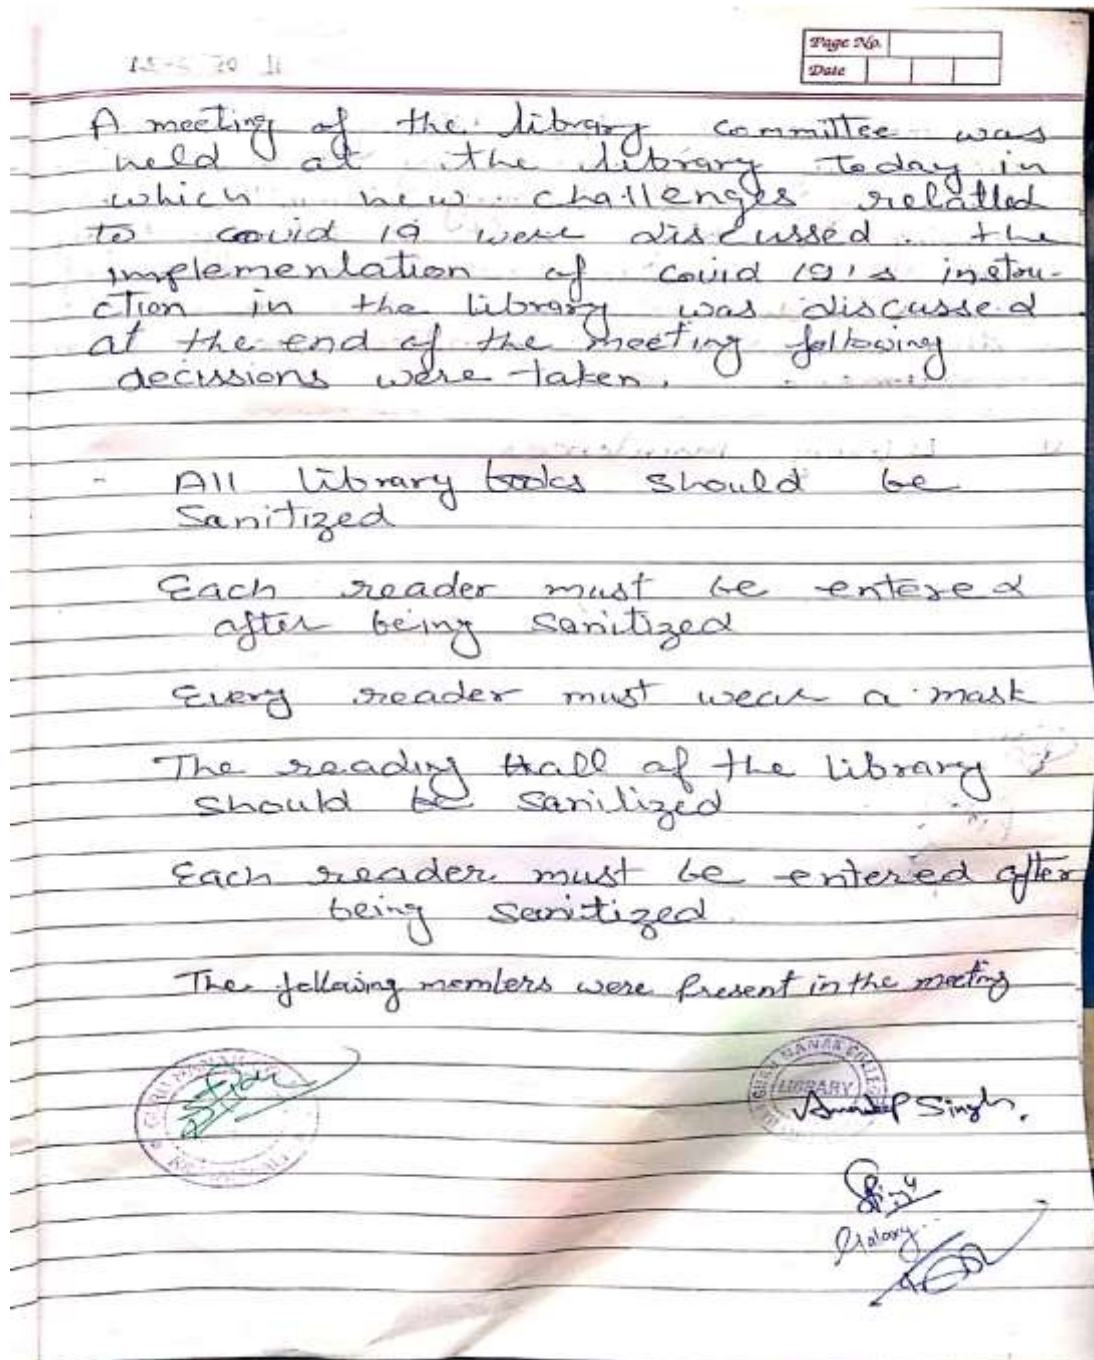 Page No.
Date
A meeting of the library committee was
held at the library today in
which new challenges relatted
to covid 19 were discussed. the
implementation of covid 19's instru-
ction in the library was discussed
at the end of the meeting following
decissions were taken.
- All library books should be
Sanitized
Each reader must be entered
after being sanitized
Every reader must wear a mask
The reading Hall of the library
should be sanitized
Each reader must be entered after
being sanitized.
The following members were present in the meeting
GURU NANAK
GURU NANAK COLLEGE
LIBRARY
Amandeep Singh.